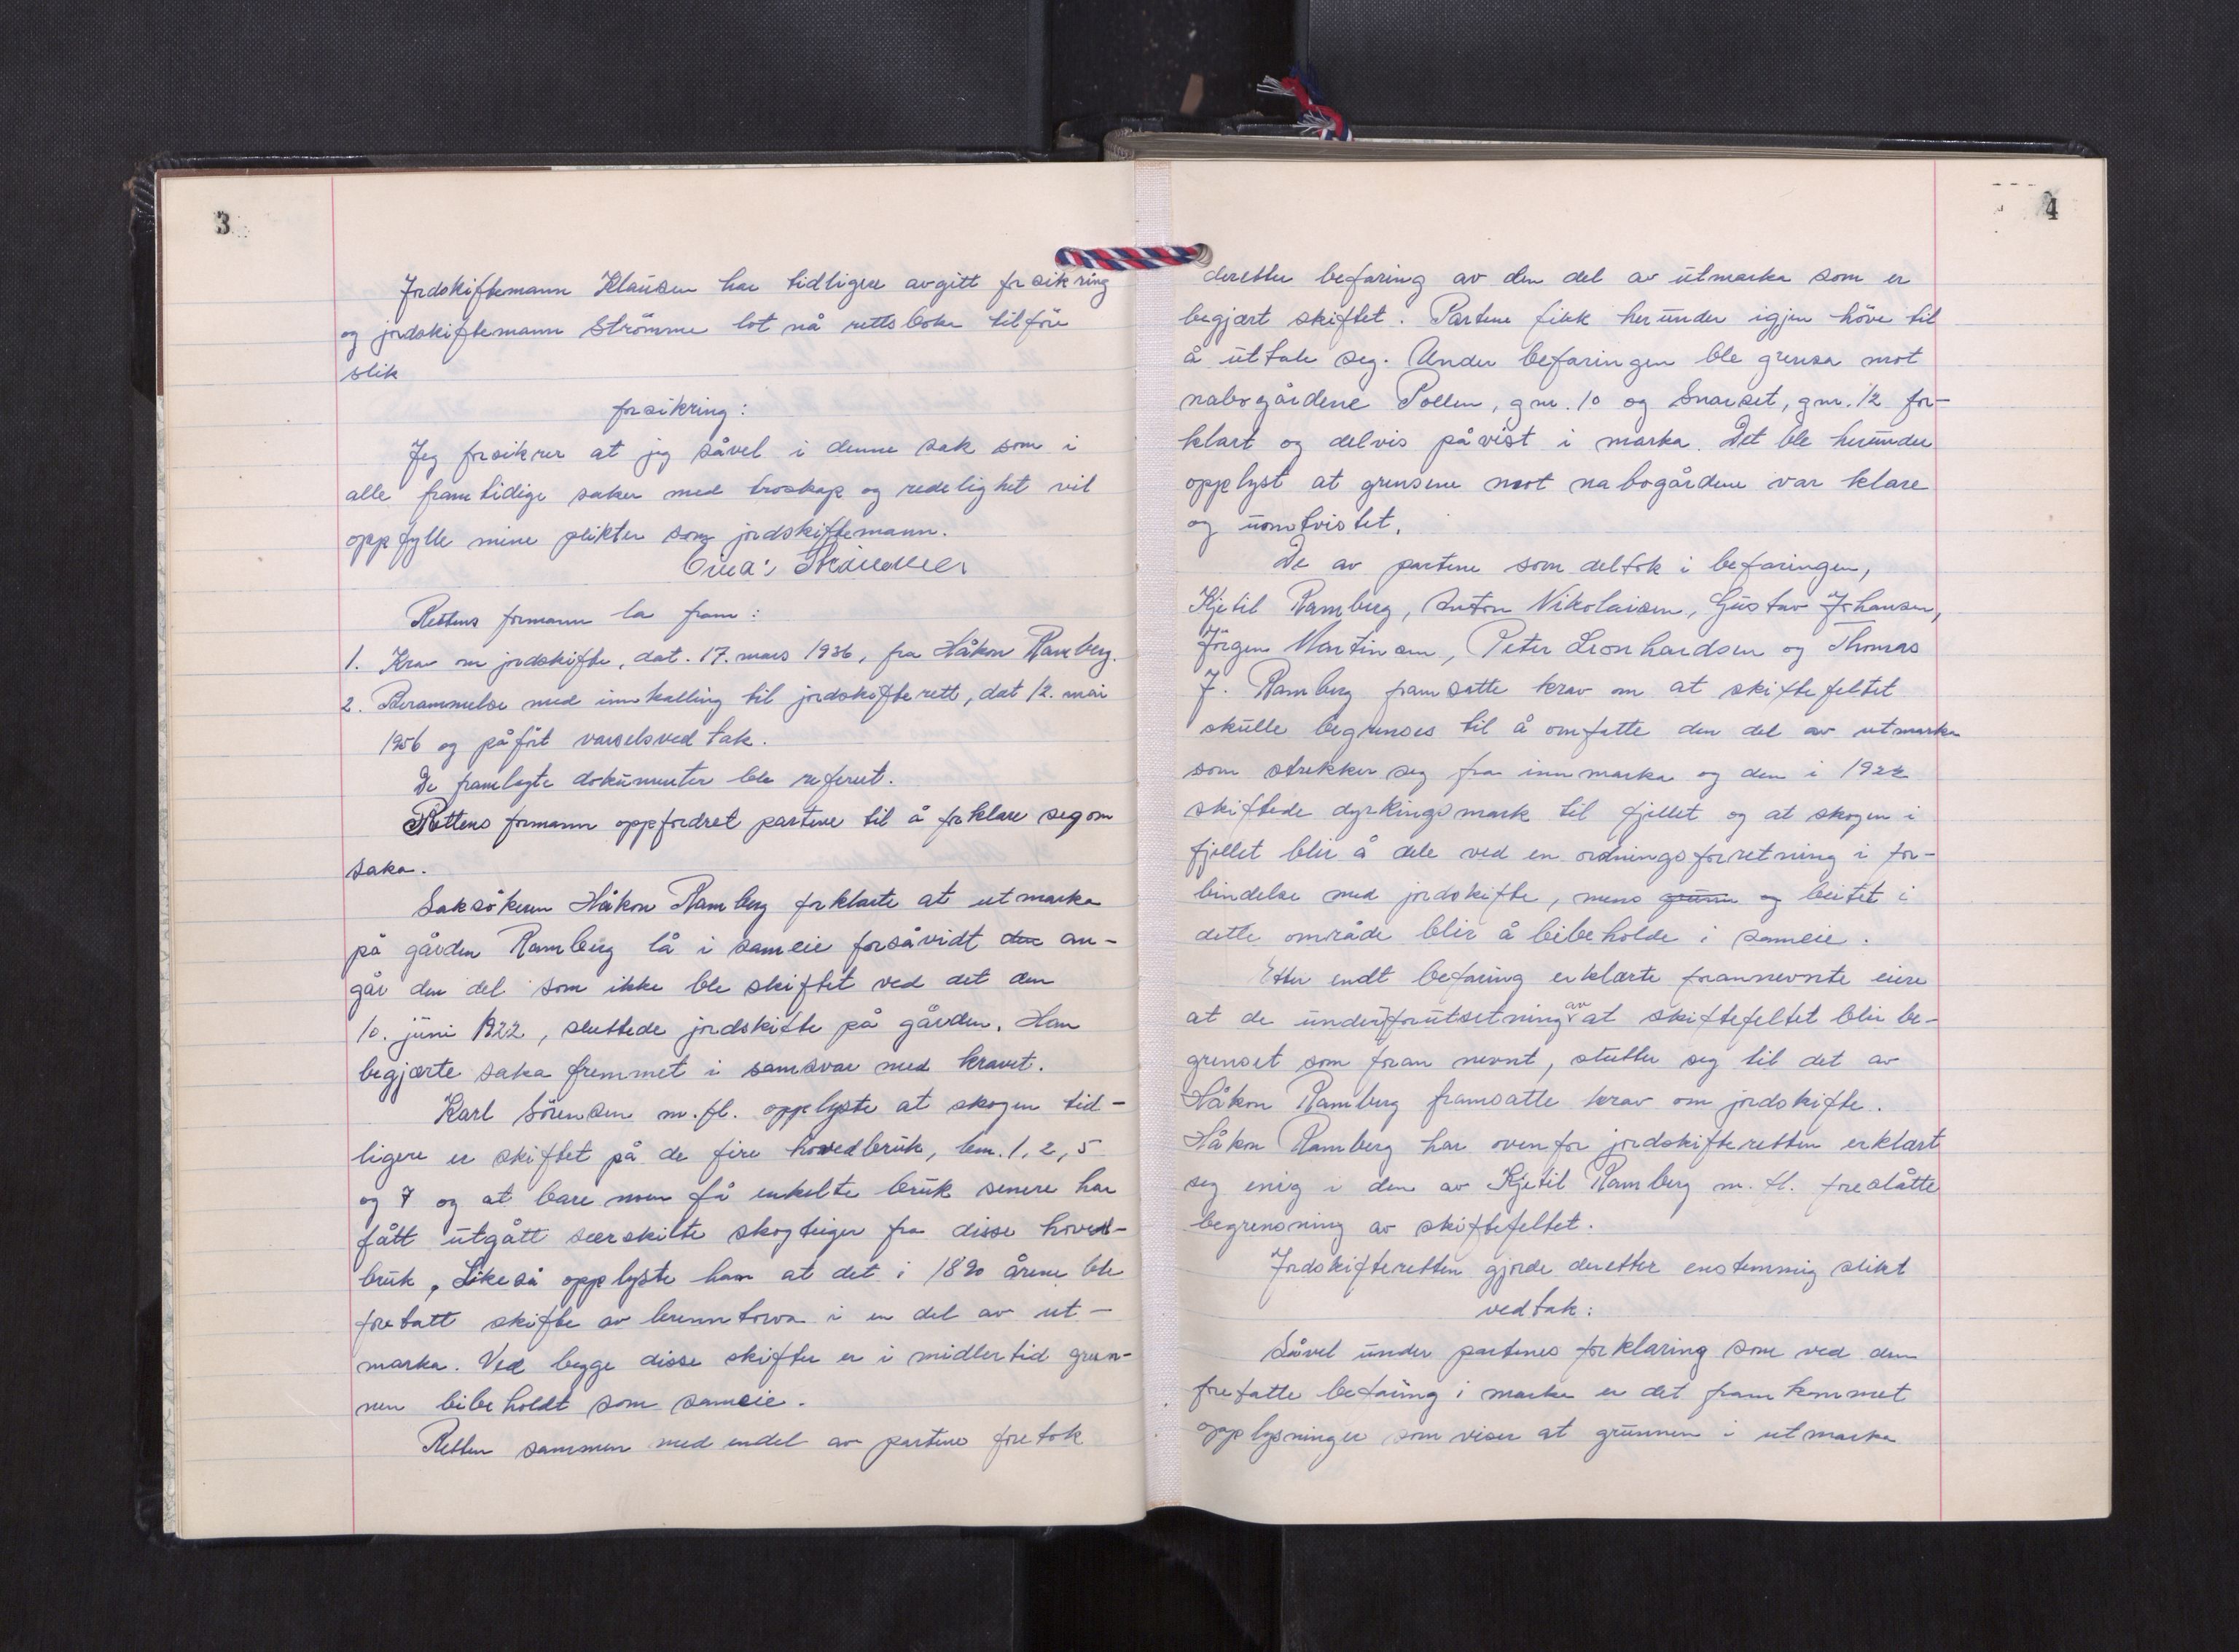 3
Jordskiftemann Klausen har tidligere avgitt forsikring
og jordskiftemann Strömme lot nå rettsboka tilföre
slik
forsikring:
Jeg forsikrer at jeg såvel i denne sak som i
alle framtidige saker med troskap og redelighet vil
oppfylle mine plikter som jordskiftemann.
Rettens formann la fram:
1. Krav om jordskifte, dat. 17. mars 1936, fra Håkon Ramberg.
2. Berammelse med innkalling til jordskifterett, dat 12. mai
1956 og påfört varselsvedtak.
De framlagte dokumenter ble referert.
Rettens formann oppfordret partene til å forklare seg om
saka.
Saksökeren Håkon Ramberg forklarte at utmarka
på gården Ramberg lå i sameie forsåvidt den an-
går den del som ikke ble skiftet ved det den
10. juni 1922, sluttede jordskifte på gården. Han
begjærte saka fremmet i samsvar med kravet.
Karl Sörensen m.fl. opplyste at skogen tid-
ligere er skiftet på de fire hovedbruk, bnr. 1, 2, 5
og 7 og at bare noen få enkelte bruk senere har
fått utgått særskilte skogteiger fra disse hoved-
bruk. Likeså opplyste han at det i 1890 årene ble
foretatt skifte av brenntorva i en del av ut-
marka. Ved begge disse skifter er imidlertid grun-
nen bibeholdt som sameie.
Retten sammen med endel av partene foretok
4
deretter befaring av den del av utmarka som er
begjært skiftet. Partene fikk herunder igjen höve til
å uttale seg. Under befaringen ble grensa mot
nabogårdene Pollen, gnr. 10 og Snarset, gnr. 12 for-
klart og delvis påvist i marka. Det ble herunder
opplyst at grensene mot nabogårdene var klare
og uomtvistet.
De av partene som deltok i befaringen,
Kjetil Ramberg, Anton Nikolaisen, Gustav Johansen,
Jörgen Martinsen, Peter Leonhardsen og Thomas
J. Ramberg framsatte krav om at skiftefeltet
skulle begrenses til å omfatte den del av utmarka
som strekker seg fra innmarka og den i 1922
skiftede dyrkingsmark til fjellet og at skogen i
fjellet blir å dele ved en ordningsforretning i for-
bindelse med jordskifte, mens grunn og beitet i
dette område blir å bibeholde i sameie.
Etter endt befaring erklærte forannevnte eiere
at de under forutsetning av at skiftefeltet blir be-
grenset som foran nevnt, slutter seg til det av
Håkon Ramberg framsatte krav om jordskifte.
Håkon Ramberg har ovenfor jordskifteretten erklært
seg enig i den av Kjetil Ramberg m. fl. foreslåtte
begrensning av skiftefeltet.
Jordskifteretten gjorde deretter enstemmig slikt
vedtak:
Såvel under partenes forklaring som ved den
foretatte befaring i marka er det framkommet
opplysninger som viser at grunnen i utmarka